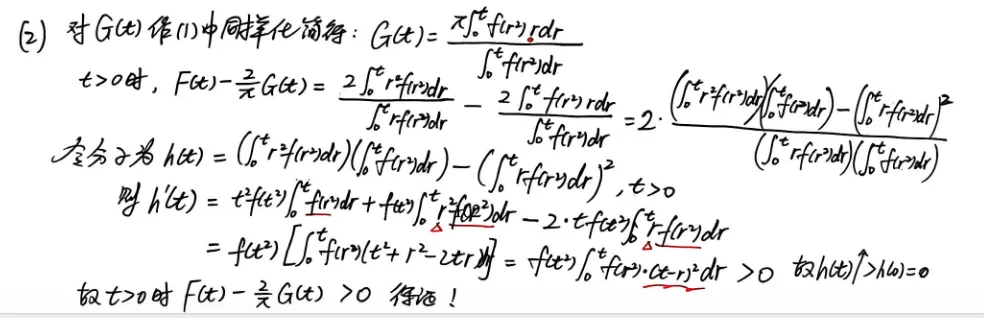 (2) 对G(t)作(1)中同样化简得：G(t)= π∫₀ᵗf(r²)rdr / ∫₀ᵗf(r²)dr
t>0时，F(t)-2/π G(t)= 2∫₀ᵗr²f(r²)dr / ∫₀ᵗrf(r²)dr - 2∫₀ᵗf(r²)rdr / ∫₀ᵗf(r²)dr = 2· (∫₀ᵗr²f(r²)dr)(∫₀ᵗf(r²)dr)-(∫₀ᵗrf(r²)dr)² / (∫₀ᵗrf(r²)dr)(∫₀ᵗf(r²)dr)
令分子为h(t)=(∫₀ᵗr²f(r²)dr)(∫₀ᵗf(r²)dr)-(∫₀ᵗrf(r²)dr)², t>0
则h'(t)= t²f(t²)∫₀ᵗf(r²)dr+f(t²)∫₀ᵗr²f(r²)dr-2·tf(t²)∫₀ᵗrf(r²)dr
=f(t²)[∫₀ᵗf(r²)(t²+r²-2tr)dr]=f(t²)∫₀ᵗf(r²)·(t-r)²dr>0 故h(t)↑>h(0)=0
故t>0时F(t)-2/π G(t)>0 得证！